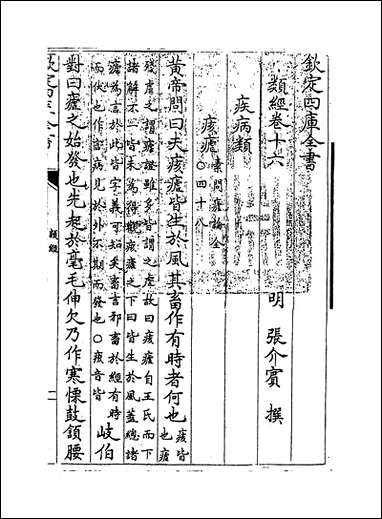 欽定四庫全書
類經卷十六
明 張介賓 撰
疾病類
痎瘧 素問瘧論全 ○四十八
黃帝問曰夫痎瘧皆生於風其畜作有時者何也 痎皆也瘧
殘虐之謂瘧證雖多皆謂之虐故曰痎瘧自王氏而下
諸解不一皆未為得觀痎瘧之下曰皆生於風蓋總諸
瘧為言於此皆字義可知矣畜言邪畜於經有時
而伏也作言病見於外不期而發也○痎音皆 岐伯
對曰瘧之始發也先起於毫毛伸欠乃作寒慄鼓頷腰
欽定四庫全書
類經